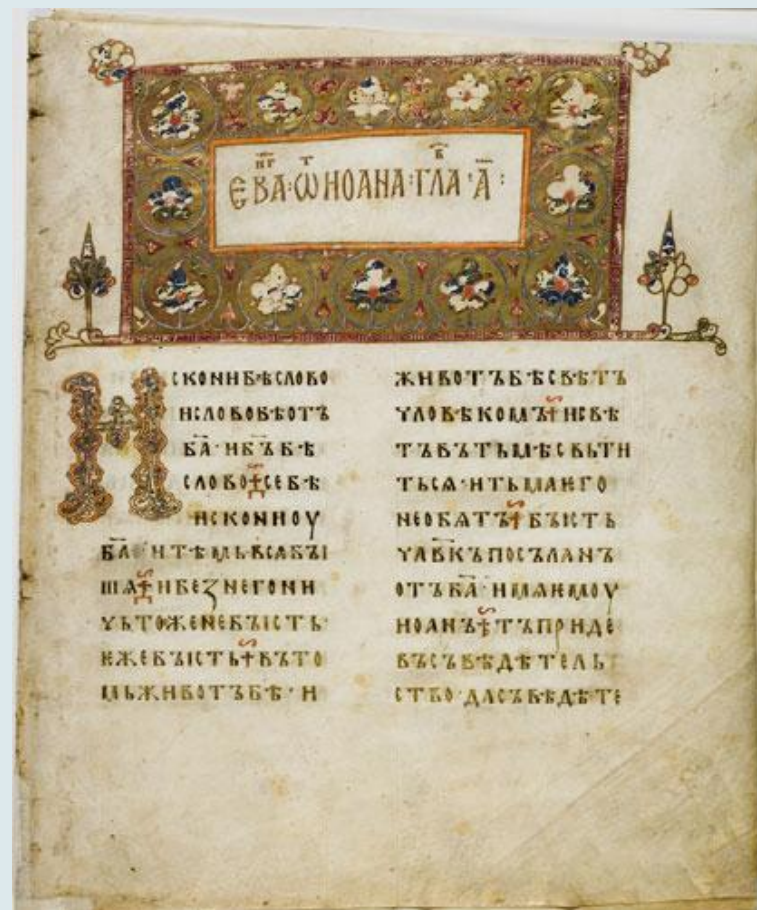 ЕВА·ѠИОАНА·ГЛА·А҃:
ИСКОНИБѢСЛОВО
ИСЛОВОБѢОТЪ
Б҃А·ИБ҃ЪБѢ
СЛОВО·СЕБѢ
ИСКОНИОУ
Б҃А·ИТѢМЬВСѦБЪІ
ШѦ·ИБЕЗНЕГОНИ
ЧЬТОЖЕНЕБЪІСТЬ·
ЕЖЕБЪІСТЬ·ВЪТО
МЬЖИВОТЪБѢ·И
ЖИВОТЪБѢСВѢТЪ
ЧЛОВѢКОМЪ·ИСВѢ
ТЪВЪТЬМѢСВЬТИ
ТЬСѦ·ИТЬМАѤГО
НЕОБѦТЪ·БЪІСТЬ
ЧЛ҃ВКЪПОСЪЛАНЪ
ОТЪБ҃А·ИМѦѤМОУ
ИОАНЪ·ТЪПРИДЕ
ВЪСЪВѢДѢТЕЛЬ
СТВО·ДАСЪВѢДѢТЕ